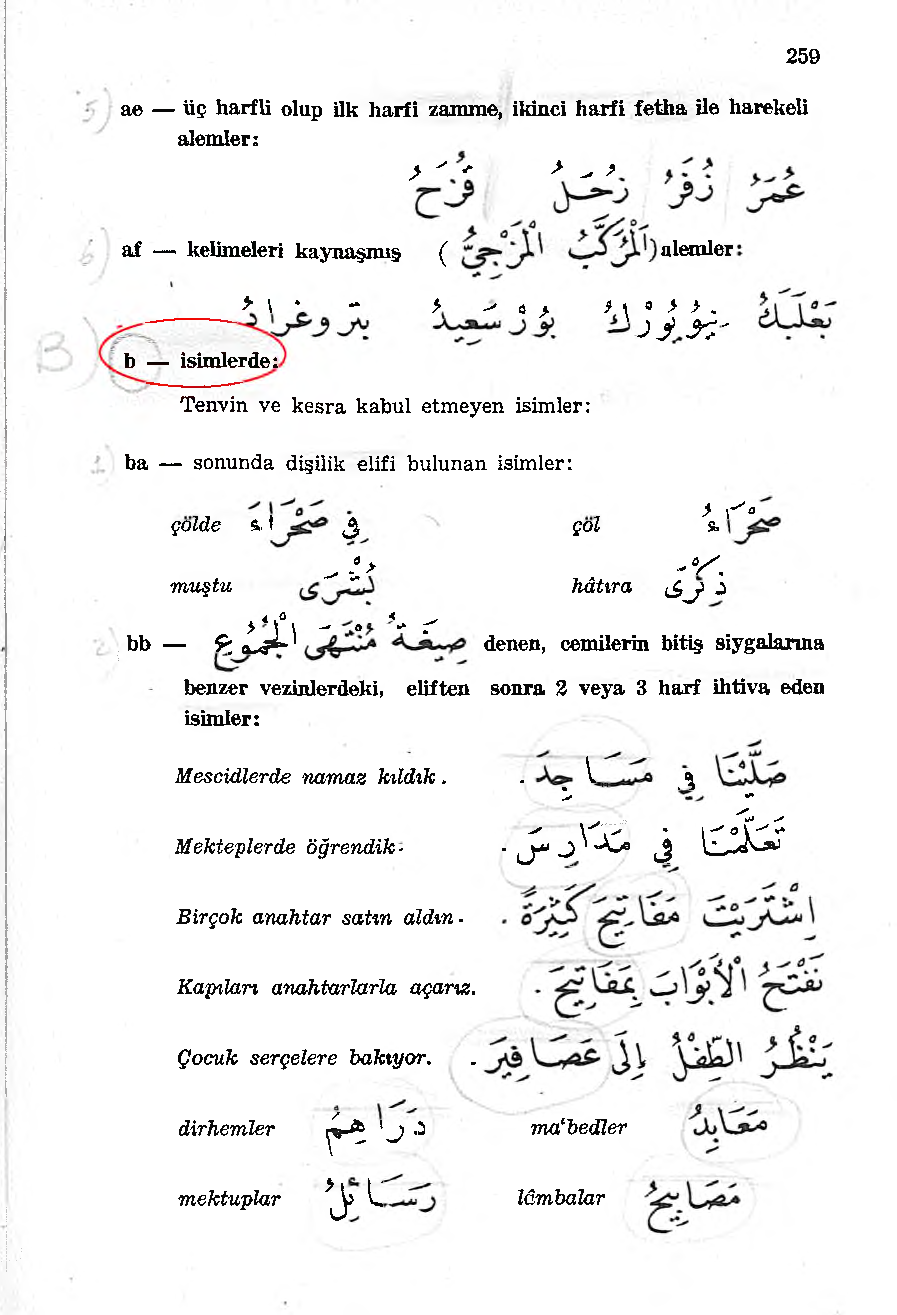 259
5) ae — üç harfli olup ilk harfi zamme, ikinci harfi fetha ile harekeli
alemler:
عُمَرُ زُفَرُ زُحَلُ قُزَحُ
6) af — kelimeleri kaynaşmış ( اَلْمُرَكَّبُ الْمَزْجِيُّ) alemler:
بَعْلَبَكُّ نِيُويُورْكُ بُورْسَعِيدُ بتروغرادُ
B) b — isimlerde:
Tenvin ve kesra kabul etmeyen isimler:
1) ba — sonunda dişilik elifi bulunan isimler:
çölde فِي صَحْرَاءَ çöl صَحْرَاءُ
muştu بُشْرَى hâtıra ذِكْرَى
2) bb — صِيغَةُ مُنْتَهَى الْجُمُوعِ denen, cemilerin bitiş siygalarına
benzer vezinlerdeki, eliften sonra 2 veya 3 harf ihtiva eden
isimler:
Mescidlerde namaz kıldık. صَلَّيْنَا فِي مَسَاجِدَ .
Mekteplerde öğrendik. تَعَلَّمْنَا فِي مَدَارِسَ .
Birçok anahtar satın aldın. اِشْتَرَيْتَ مَفَاتِيحَ كَثِيرَةً .
Kapıları anahtarlarla açarız. نَفْتَحُ الْأَبْوَابَ بِمَفَاتِيحَ .
Çocuk serçelere bakıyor. يَنْظُرُ الطِّفْلُ إِلَى عَصَافِيرَ .
dirhemler دَرَاهِمُ ma‘bedler مَعَابِدُ
mektuplar رَسَائِلُ lâmbalar مَصَابِيحُ